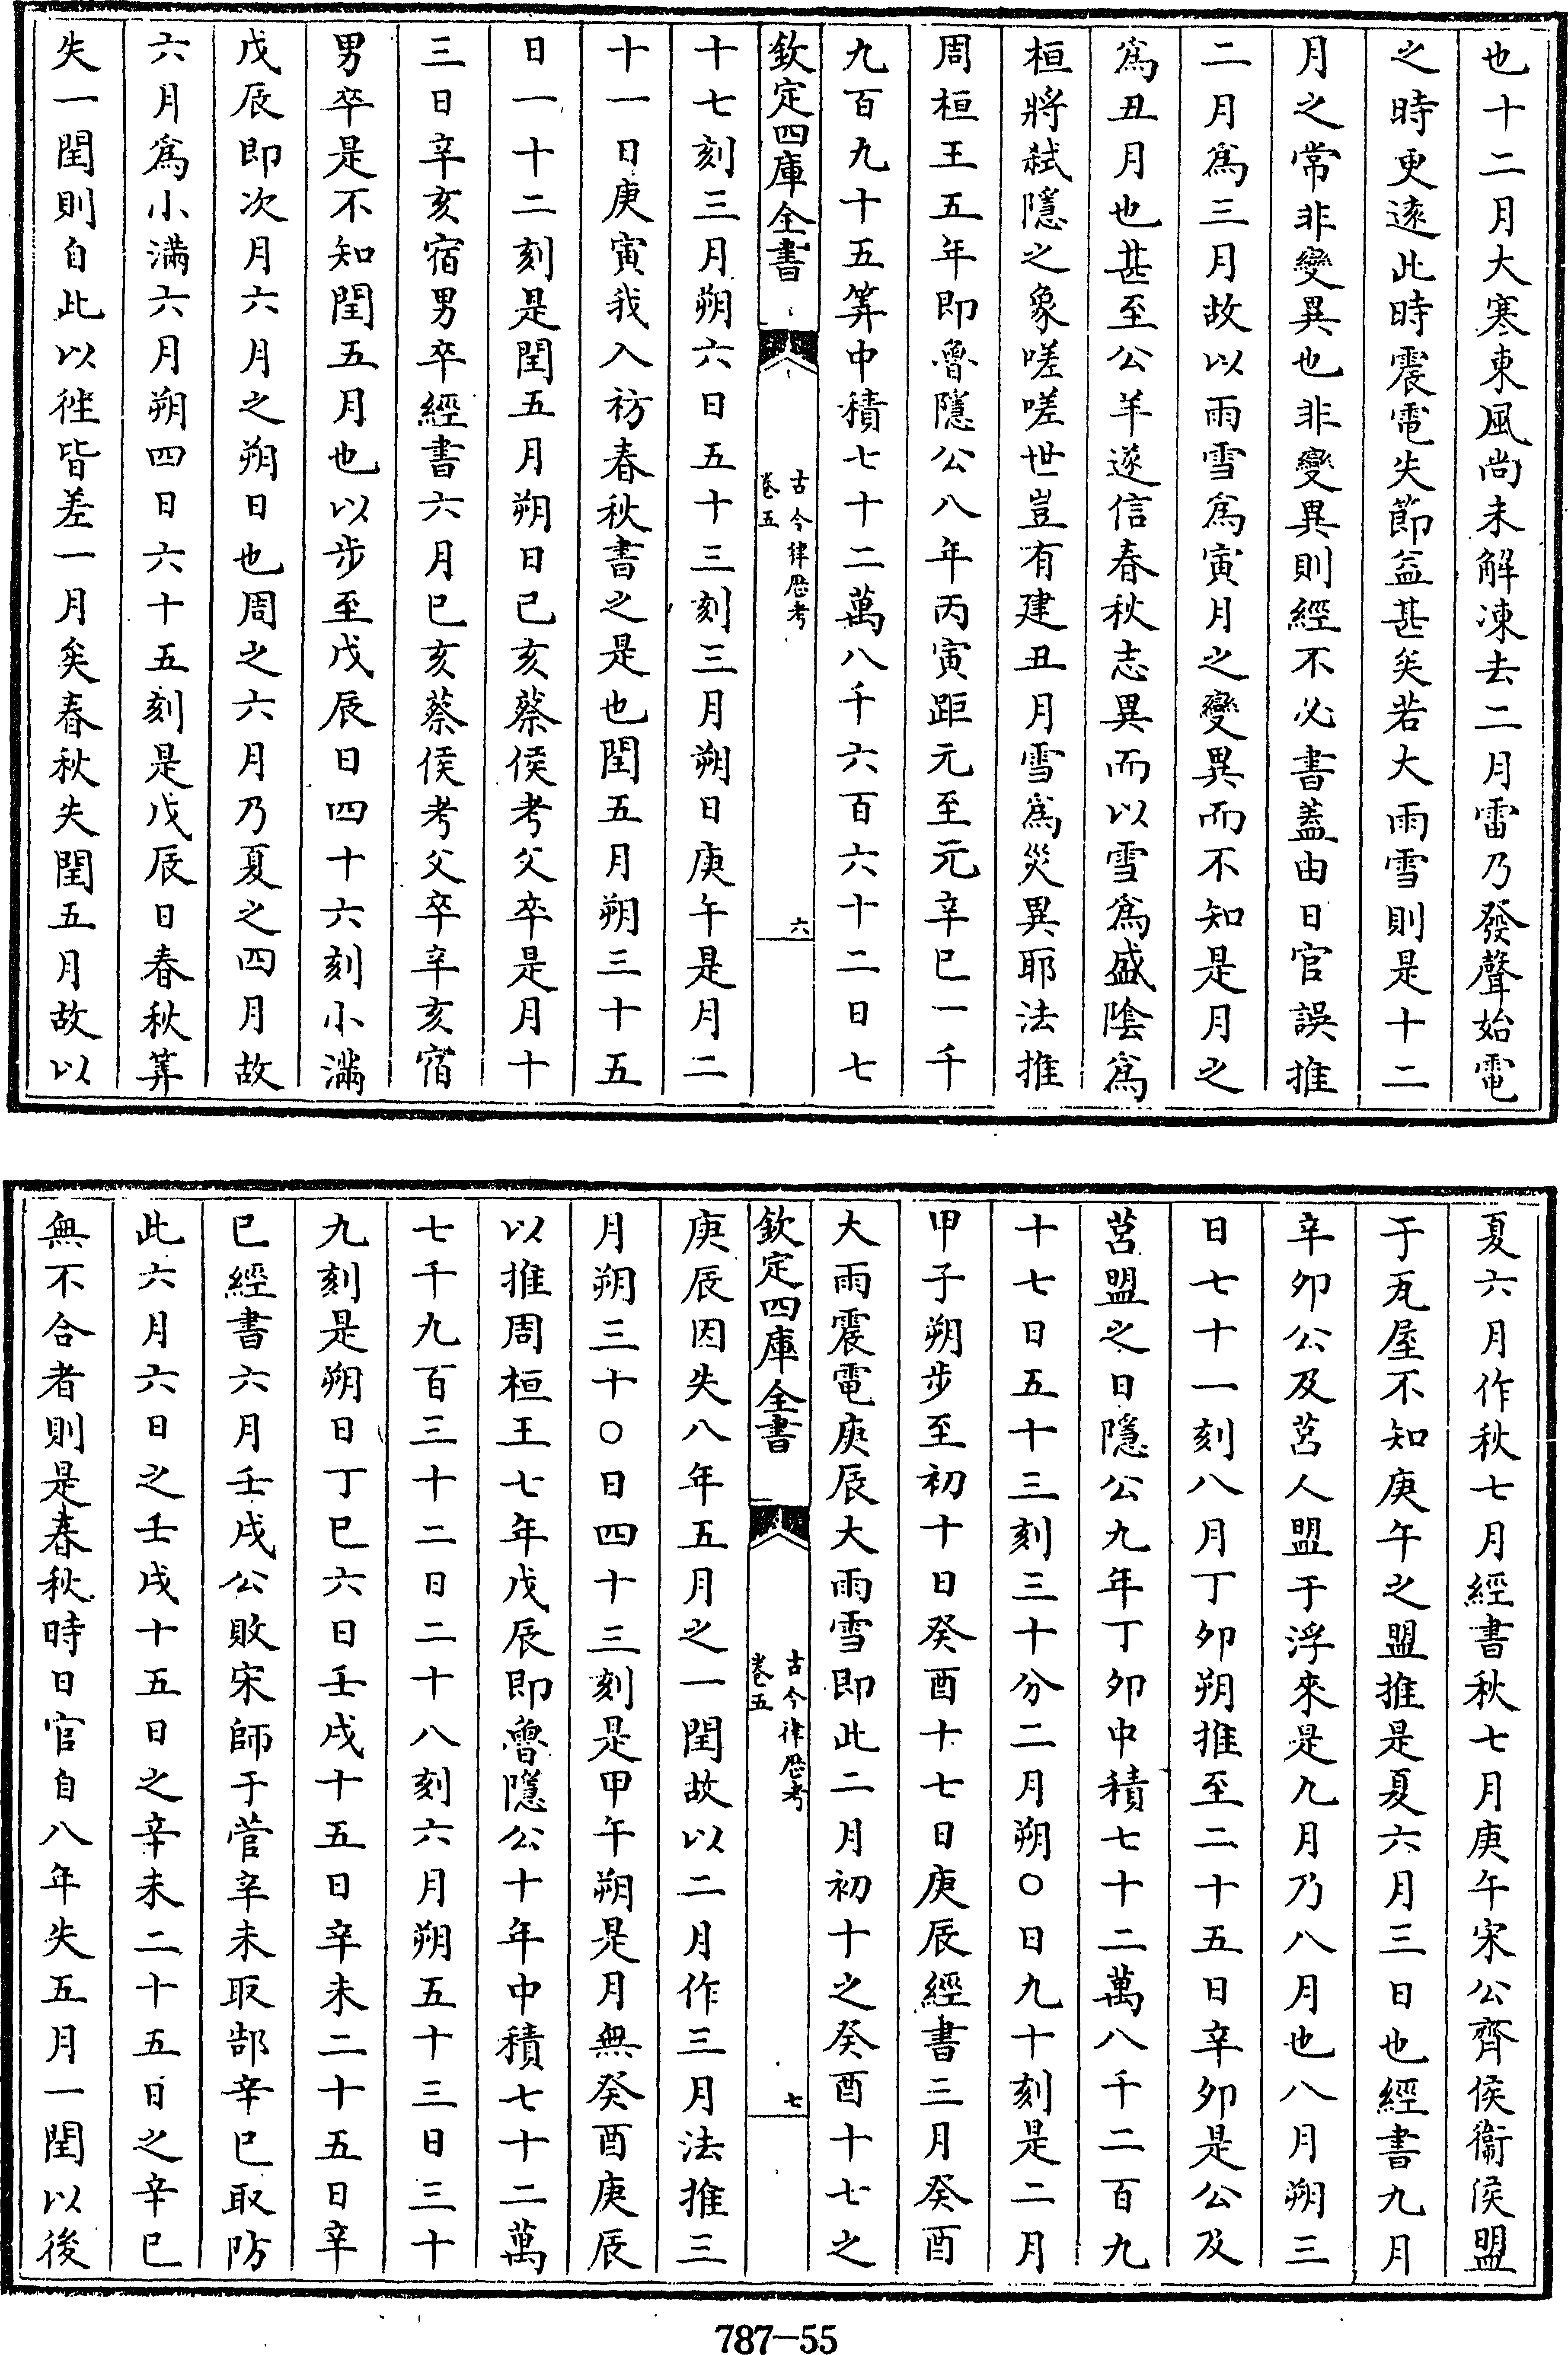 也十二月大寒東風尚未解凍去二月雷乃發聲始電
之時更遠此時震電失節益甚矣若大雨雪則是十二
月之常非變異也非變異則經不必書蓋由日官誤推
二月為三月故以雨雪為寅月之變異而不知是月之
為丑月也甚至公羊遂信春秋志異而以雪為盛陰為
桓將弑隱之象嗟嗟世豈有建丑月雪為災異耶法推
周桓王五年即魯隱公八年丙寅距元至元辛巳一千
九百九十五筭中積七十二萬八千六百六十二日七
欽定四庫全書
古今律歷考
卷五
六
十七刻三月朔六日五十三刻三月朔日庚午是月二
十一日庚寅我入祊春秋書之是也閏五月朔三十五
日一十二刻是閏五月朔日己亥蔡侯考父卒是月十
三日辛亥宿男卒經書六月己亥蔡侯考父卒辛亥宿
男卒是不知閏五月也以步至戊辰日四十六刻小滿
戊辰即次月六月之朔日也周之六月乃夏之四月故
六月為小滿六月朔四日六十五刻是戊辰日春秋筭
失一閏則自此以徃皆差一月矣春秋失閏五月故以
夏六月作秋七月經書秋七月庚午宋公齊侯衞侯盟
于瓦屋不知庚午之盟推是夏六月三日也經書九月
辛卯公及莒人盟于浮來是九月乃八月也八月朔三
日七十一刻八月丁卯朔推至二十五日辛卯是公及
莒盟之日隱公九年丁卯中積七十二萬八千二百九
十七日五十三刻三十分二月朔〇日九十刻是二月
甲子朔步至初十日癸酉十七日庚辰經書三月癸酉
大雨震電庚辰大雨雪即此二月初十之癸酉十七之
欽定四庫全書
古今律歷考
卷五
七
庚辰因失八年五月之一閏故以二月作三月法推三
月朔三十〇日四十三刻是甲午朔是月無癸酉庚辰
以推周桓王七年戊辰即魯隱公十年中積七十二萬
七千九百三十二日二十八刻六月朔五十三日三十
九刻是朔日丁巳六日壬戌十五日辛未二十五日辛
巳經書六月壬戌公敗宋師于菅辛未取郜辛巳取防
此六月六日之壬戌十五日之辛未二十五日之辛巳
無不合者則是春秋時日官自八年失五月一閏以後
787-55